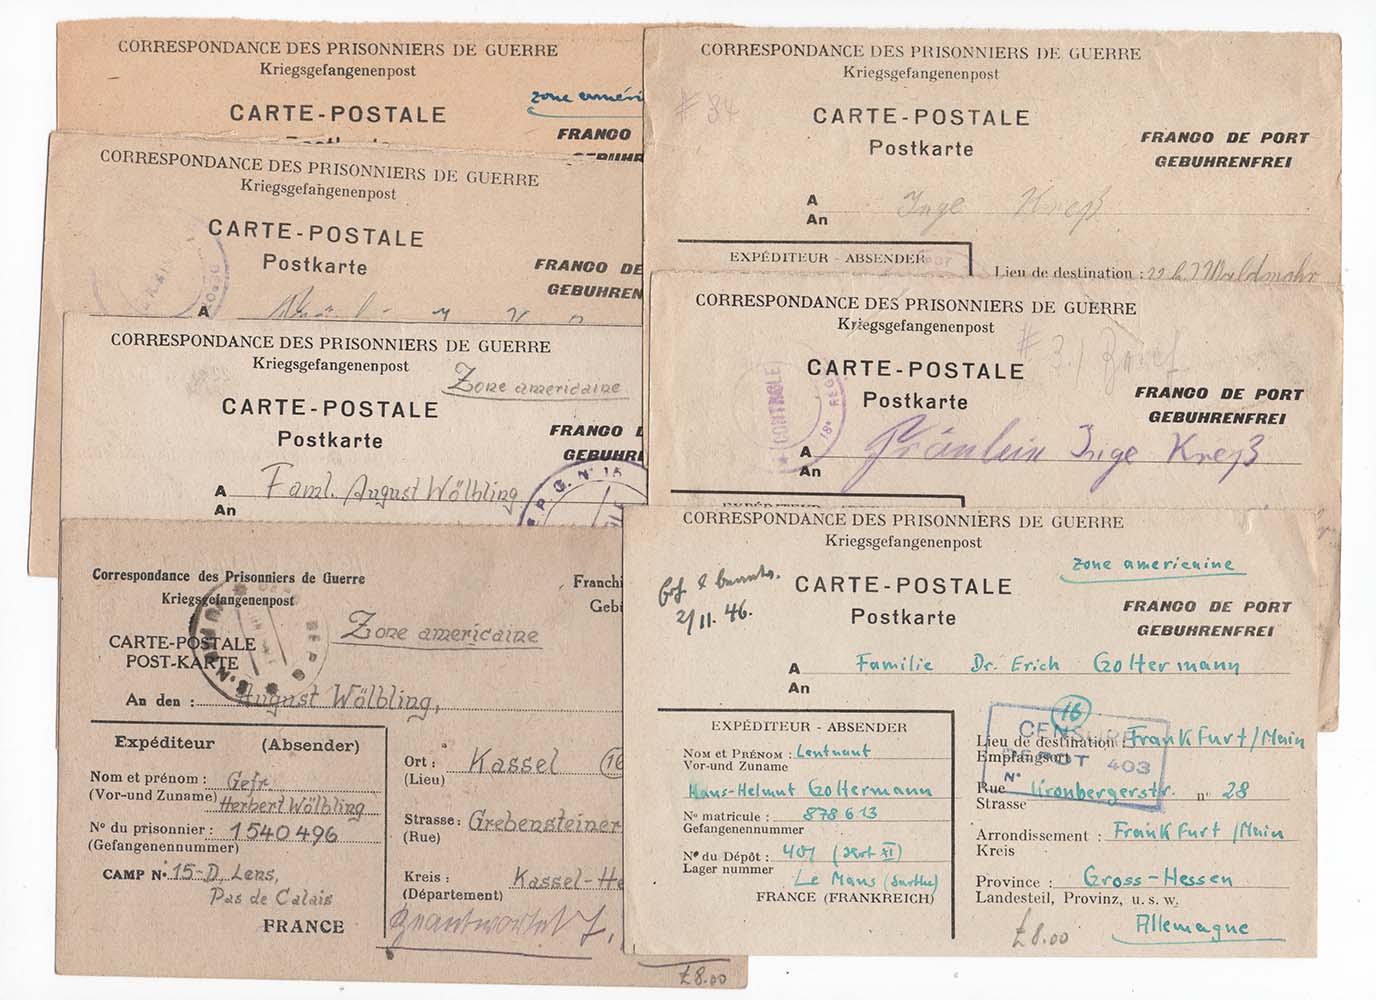 CORRESPONDANCE DES PRISONNIERS DE GUERRE
Kriegsgefangenenpost
zone améri
CARTE-POSTALE
FRANCO
CORRESPONDANCE DES PRISONNIERS DE GUERRE
Kriegsgefangenenpost
CARTE-POSTALE
Postkarte
FRANCO DE
GEBUHREN
A
CORRESPONDANCE DES PRISONNIERS DE GUERRE
Kriegsgefangenenpost
Zone americaine
CARTE-POSTALE
Postkarte
FRANCO
GEBUHR
P. G. N° 15
A Faml. August Wölbling
An
Correspondance des Prisonniers de Guerre
Kriegsgefangenenpost
Franchi
Gebi
CARTE-POSTALE
POST-KARTE
Zone américaine
An den : August Wölbling,
Expéditeur (Absender)
Nom et prénom : Gefr.
(Vor-und Zuname) Herbert Wölbling
N° du prisonnier : 1540496
(Gefangenennummer)
CAMP N° 15-D, Lens,
Pas de Calais
FRANCE
Ort : Kassel (16
(Lieu)
Strasse : Grebensteiner
(Rue)
Kreis : Kassel-He
(Département)
Beantwortet
£8.00
CORRESPONDANCE DES PRISONNIERS DE GUERRE
Kriegsgefangenenpost
# 34
CARTE-POSTALE
Postkarte
FRANCO DE PORT
GEBUHRENFREI
A Inge Kreß
An
EXPÉDITEUR - ABSENDER
Lieu de destination : 22 b) Waldmohr
CORRESPONDANCE DES PRISONNIERS DE GUERRE
Kriegsgefangenenpost
# 31 Brief
CARTE-POSTALE
Postkarte
FRANCO DE PORT
GEBUHRENFREI
CONTROLE
18e REG
A Fräulein Inge Kreß
An
CORRESPONDANCE DES PRISONNIERS DE GUERRE
Kriegsgefangenenpost
zone americaine
2/11.46.
CARTE-POSTALE
Postkarte
FRANCO DE PORT
GEBUHRENFREI
A Familie Dr. Erich Goltermann
An
EXPÉDITEUR - ABSENDER
Nom et Prénom : Leutnant
Vor-und Zuname
Hans-Helmut Goltermann
N° matricule : 878613
Gefangenennummer
N° du Dépôt : 401 (Dépôt XI)
Lager nummer
Le Mans (Sarthe)
FRANCE (FRANKREICH)
16
CENSURE
DEPOT 403
N°
Lieu de destination : Frankfurt/Main
Empfangsort
Rue Kronbergerstr. n° 28
Strasse
Arrondissement : Frankfurt/Main
Kreis
Province : Gross-Hessen
Landesteil, Provinz, u. s. w.
Allemagne
£8.00